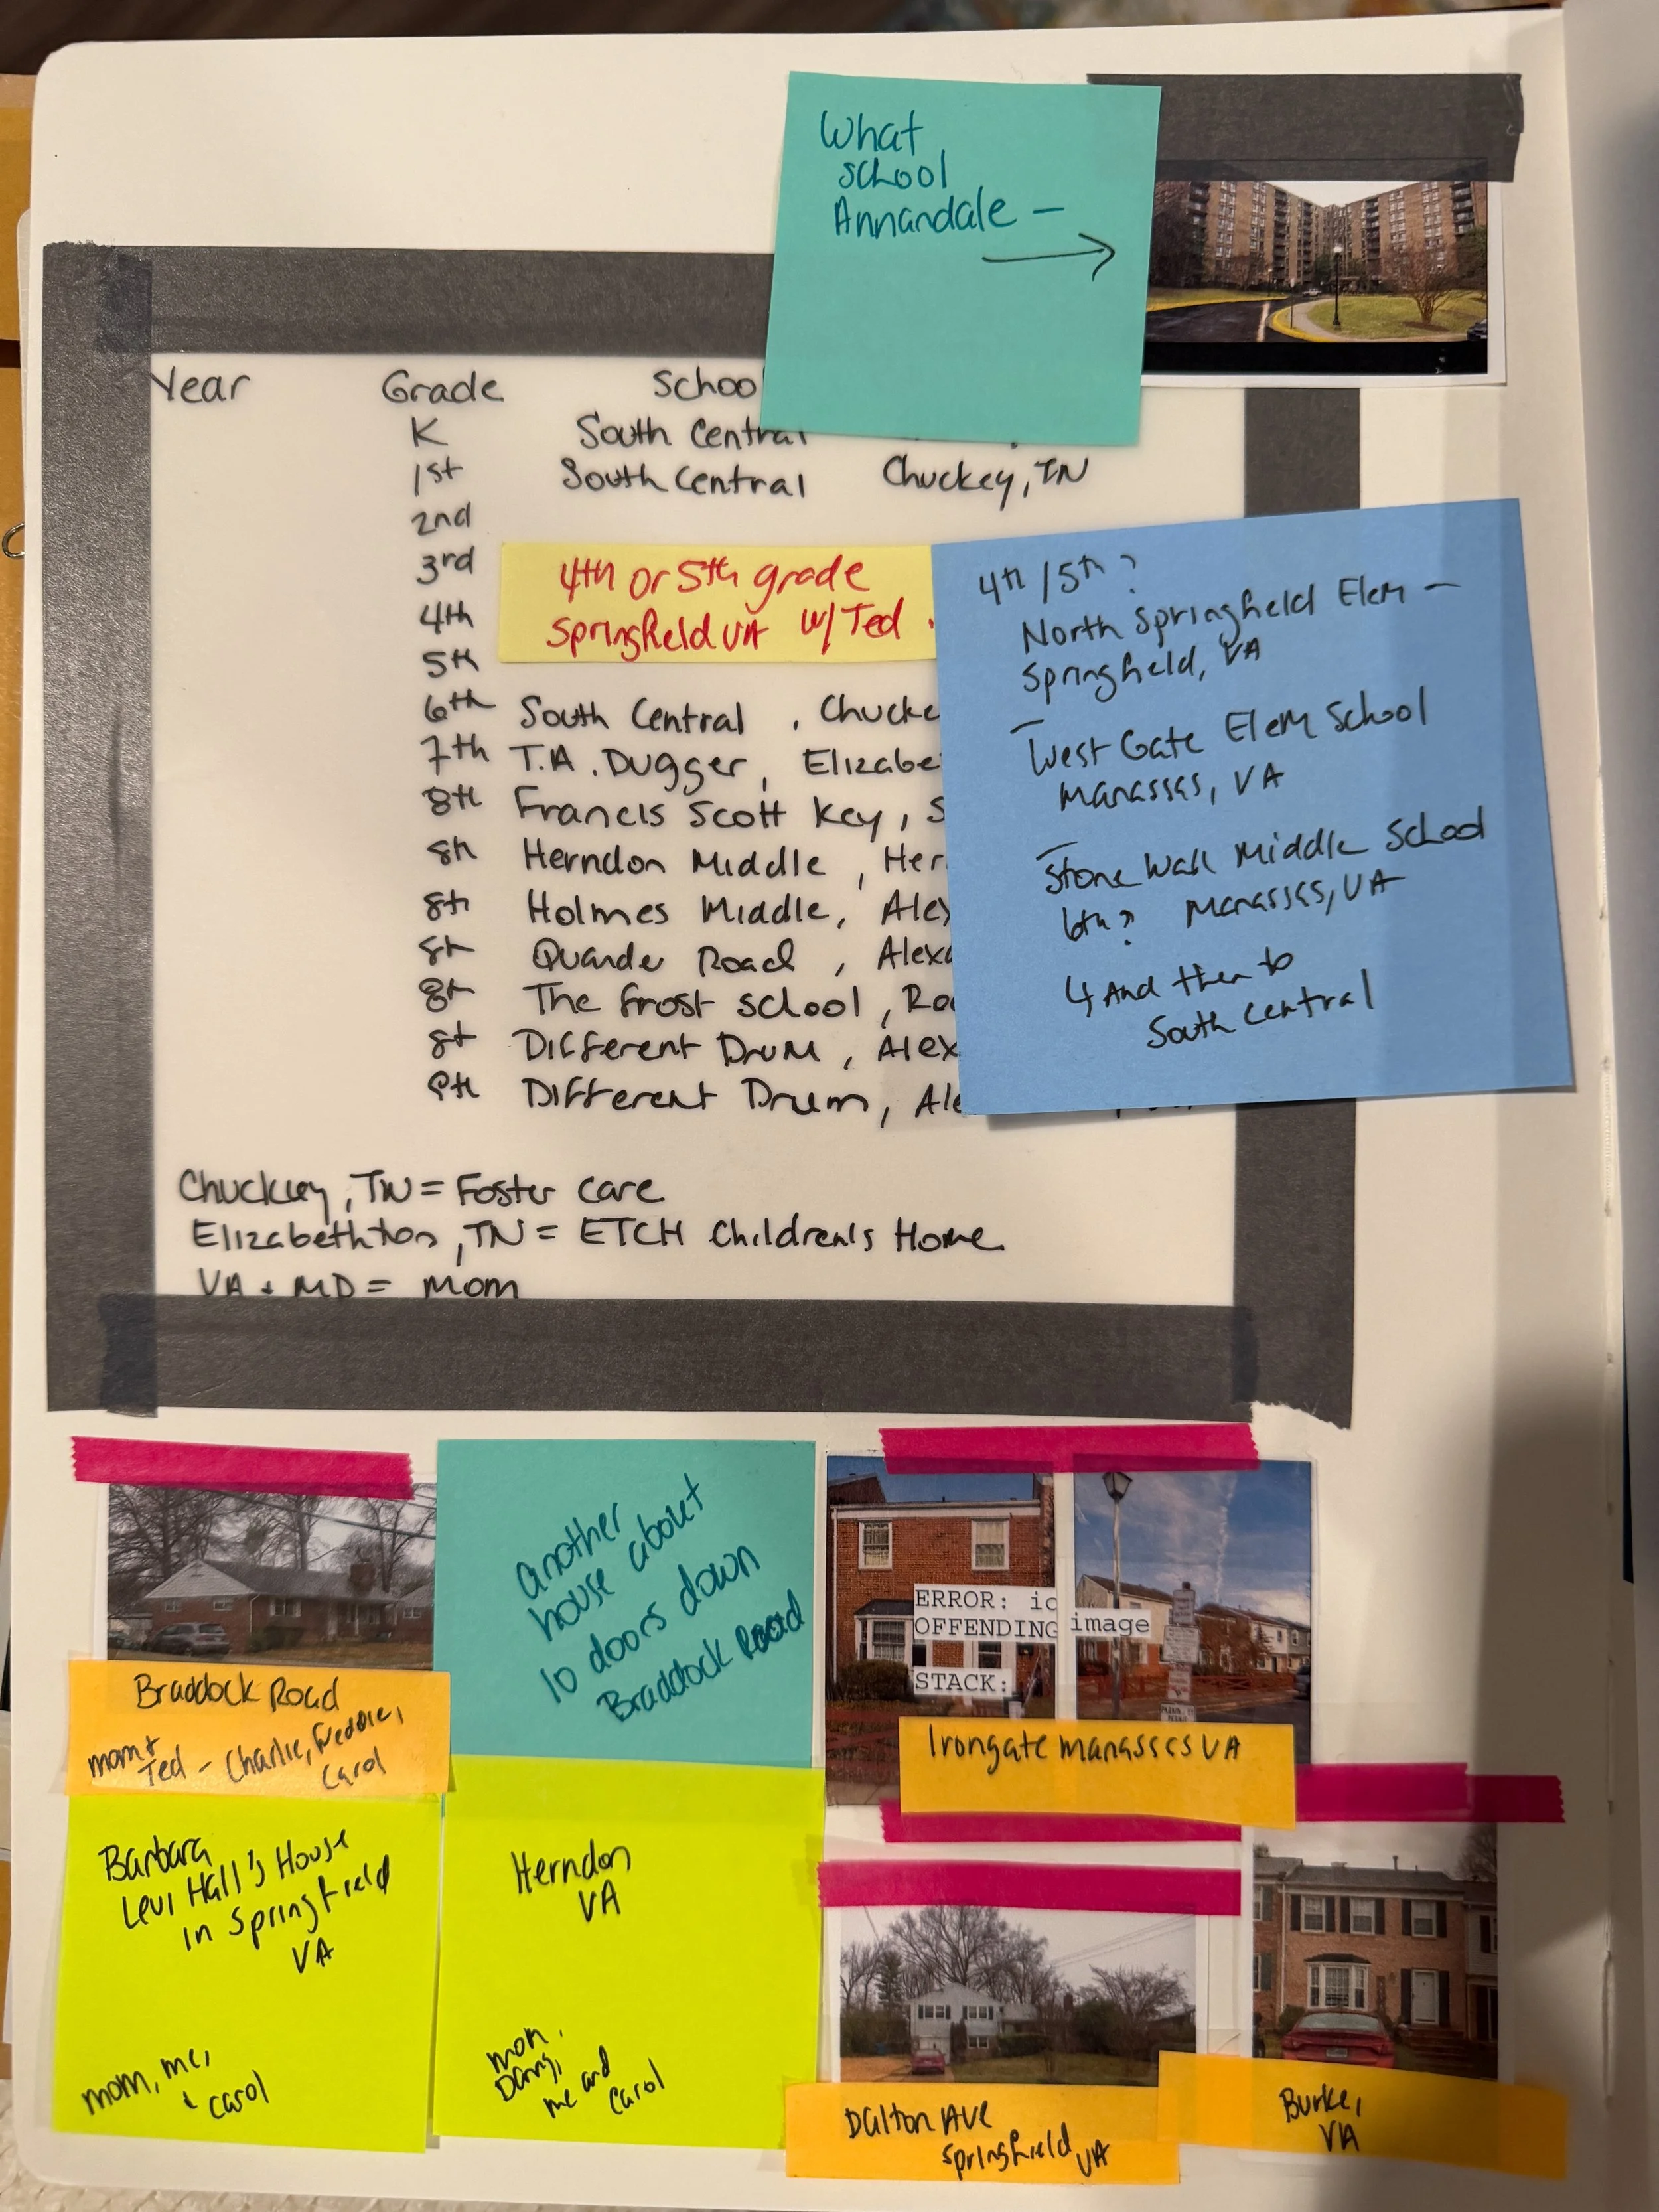 What
school
Annandale —
Year Grade Schoo
K South Central
1st South Central Chuckey, TN
2nd
3rd
4th
5th
4th or 5th grade
Springfield VA w/ Ted .
6th South Central , Chucke
7th T.A. Dugger, Elizabe
8th Francis Scott Key, S
8th Herndon Middle, Her
8th Holmes Middle, Alex
8th Quander Road, Alexa
8th The Frost School, Roc
8th Different Drum, Alex
9th Different Drum, Ale
4th / 5th ?
North Springfield Elem —
Springfield, VA
— West Gate Elem School
Manassas, VA
— Stone Wall Middle School
6th? Manassas, VA
↳ And then to
South Central
Chuckey, TN = Foster care
Elizabethton, TN = ETCH Children's Home
VA + MD = Mom
Braddock Road
mom +
Ted - Charlie, Freddie,
Carol
another
house about
10 doors down
Braddock Road
ERROR: io
OFFENDING image
STACK:
Irongate Manassas VA
Barbara
Levi Hall's House
in Springfield
VA
mom, me,
+ carol
Herndon
VA
mom,
me and
Carol
Dalton Ave
Springfield, VA
Burke,
VA